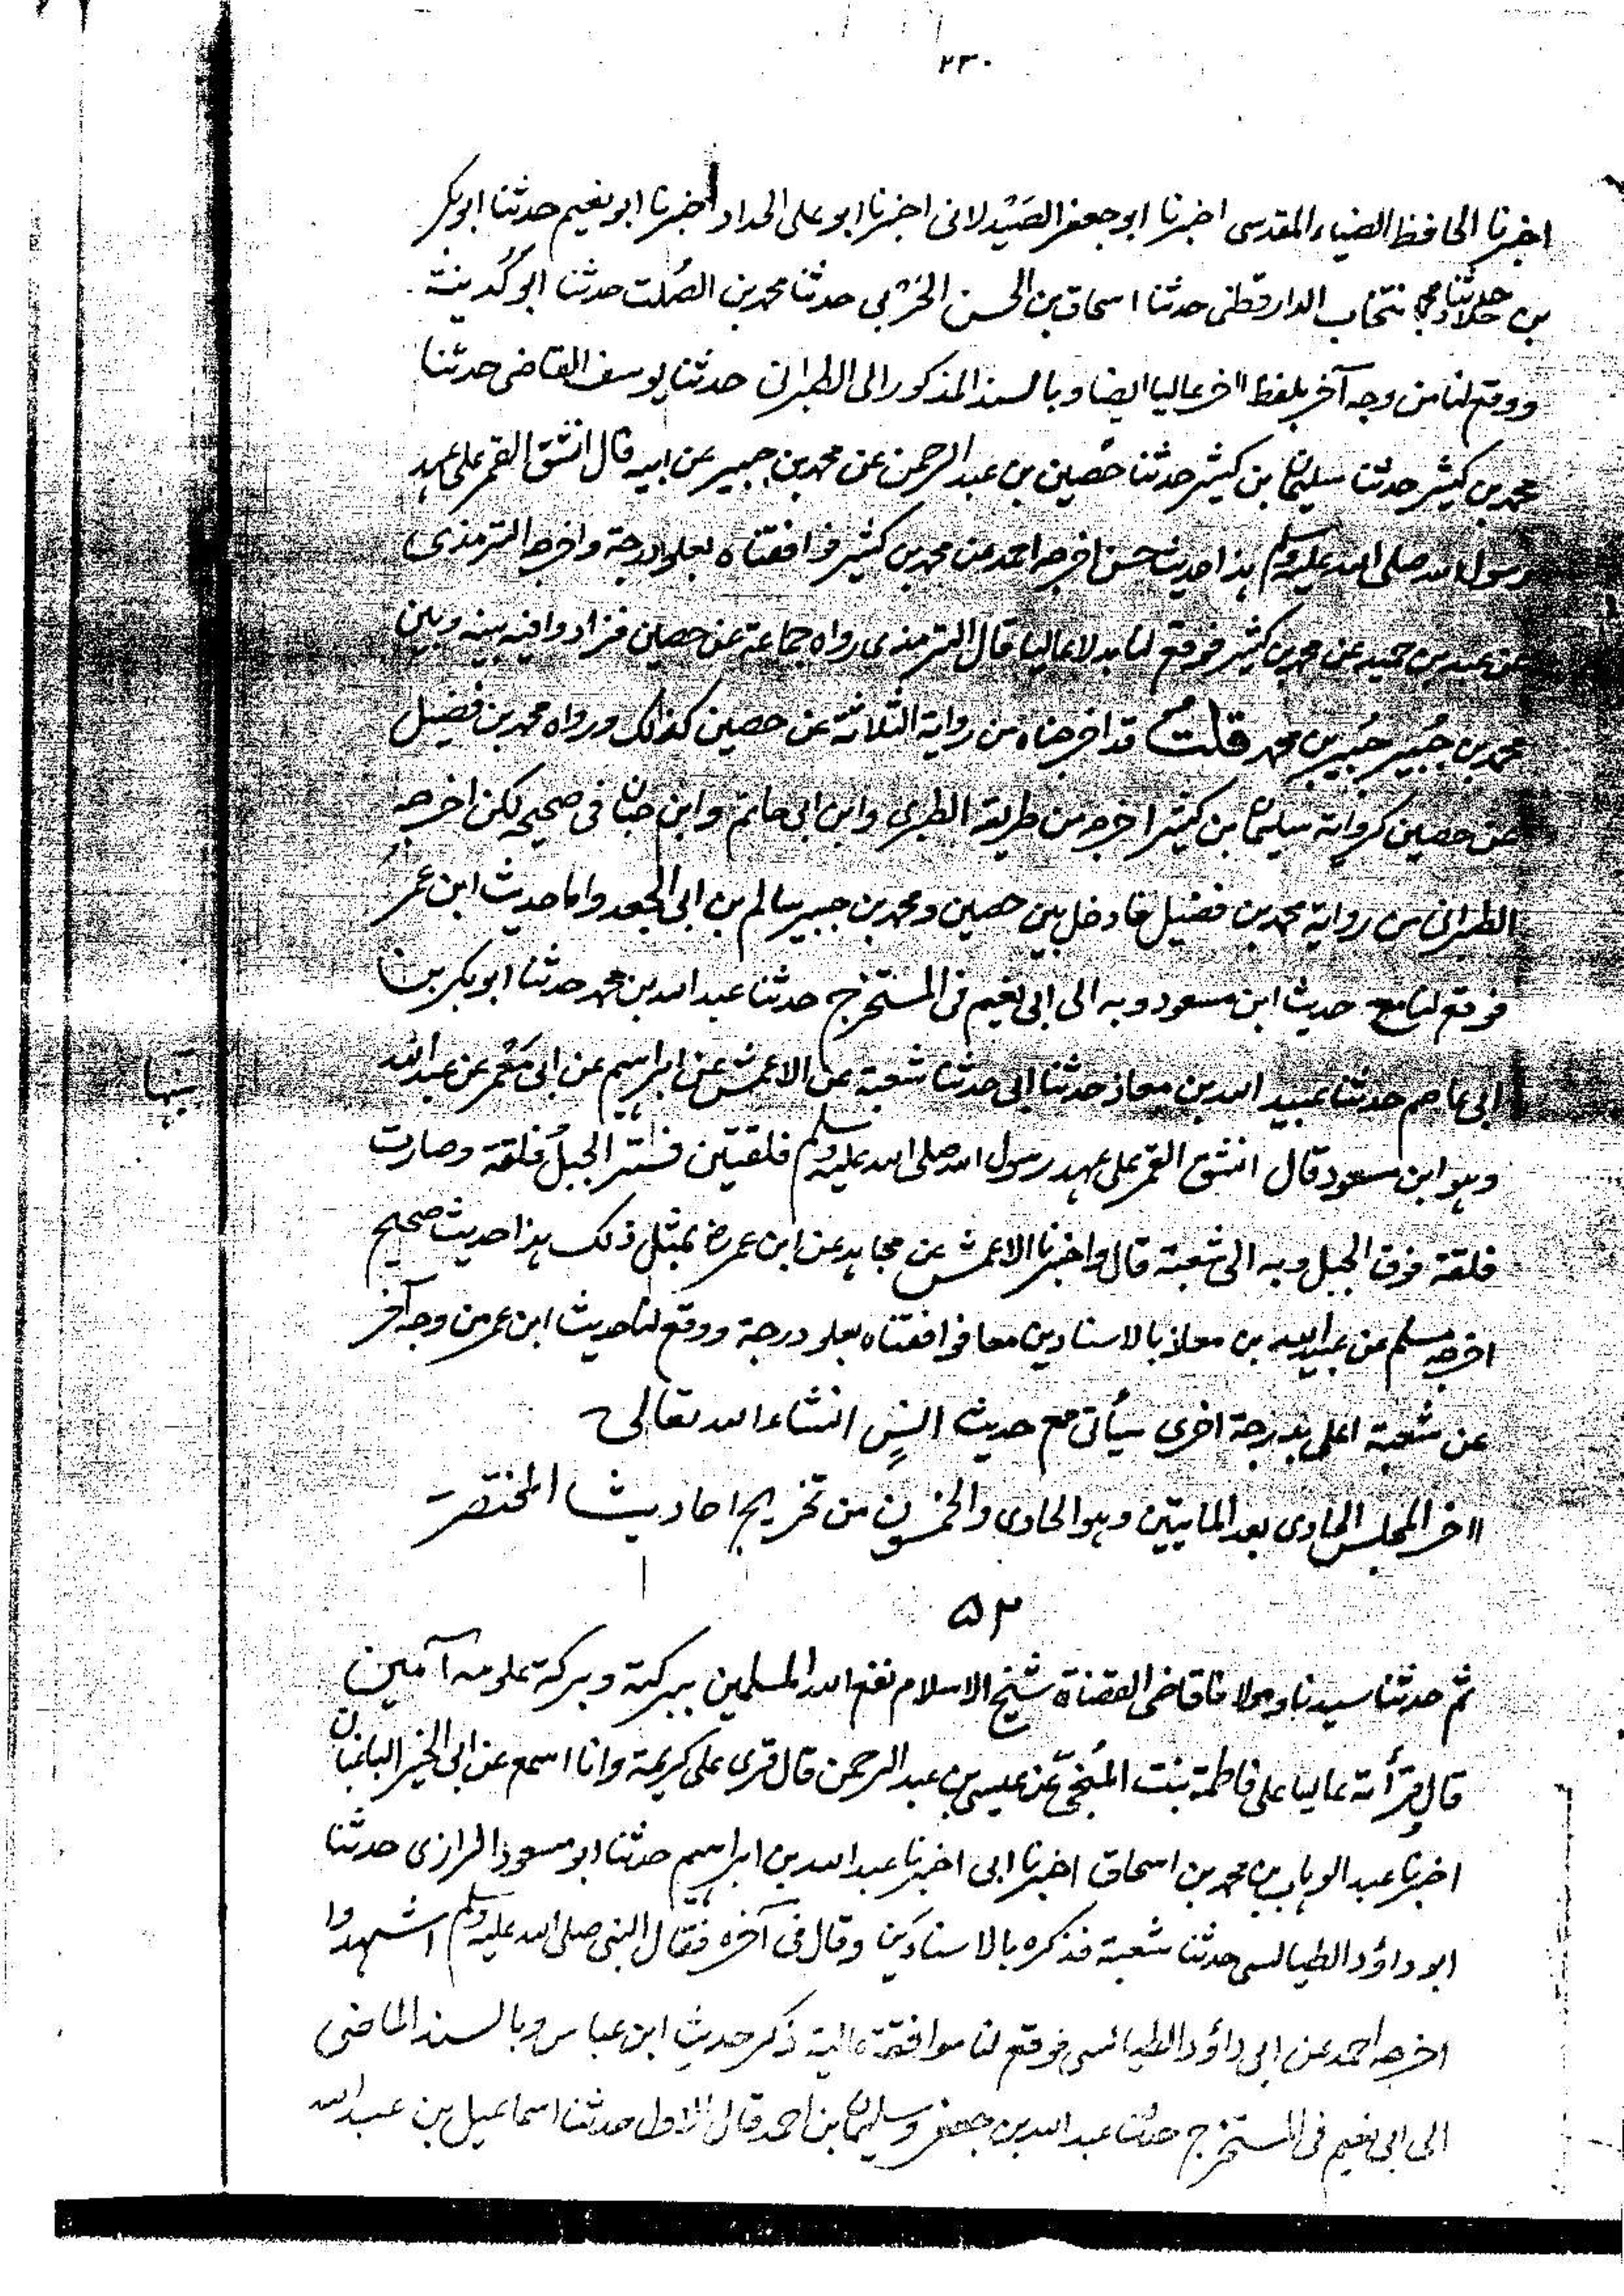 ٢٣٠
اخبرنا الحافظ الضياء المقدسى اخبرنا ابو جعفر الصَيْدلانى اخبرنا ابو على الحداد اخبرنا ابو نعيم حدثنا ابوبكر
بن خلاد انتخاب الدارقطنى حدثنا اسحاق بن الحسن الحَرْبى حدثنا محمد بن الصُلت حدثنا ابو كُدينة
ووقع لنا من وجه آخر بلفظ اخر عاليا ايضا وبالسند المذكور الى الطبرانى حدثنا يوسف القاضى حدثنا
محمد بن كثير حدثنا سليمان بن كثير حدثنا حُصين بن عبد الرحمن عن محمد بن جبير عن ابيه قال انشق القمر على عهد
رسول الله صلى الله عليه وسلم هذا حديث حسن اخرجه احمد عن محمد بن كثير فوافقناه بعلو درجة واخرجه الترمذى
عن عبد بن حميد عن محمد بن كثير فوقع لنا بدلا عاليا قال الترمذى رواه جماعة عن حصين فزادوا فيه بينه وبين
محمد بن جُبير جُبير بن محمد قلت قد اخرجناه من رواية الثلاثة عن حصين كذالك ورواه محمد بن فضيل
عن حصين كرواية سليمان بن كثير اخرجه من طريقه الطبرى وابن ابى حاتم وابن حبان فى صحيحه لكن اخرجه
الطبرانى من رواية محمد بن فضيل فادخل بين حصين ومحمد بن جبير سالم بن ابى الجعد واما حديث ابن عمر
فوقع لنا مع حديث ابن مسعود وبه الى ابى نعيم فى المستخرج حدثنا عبد الله بن محمد حدثنا ابوبكر بن
ابى عاصم حدثنا عبيد الله بن معاذ حدثنا ابى حدثنا شعبة عن الاعمش عن ابراهيم عن ابى مَعْمر عن عبد الله
وهو ابن مسعود قال انشق القمر على عهد رسول الله صلى الله عليه وسلم فلقتين فستر الجبلُ فلقة وصارت
فلقة فوق الجبل وبه الى شعبة قال واخبرنا الاعمش عن مجاهد عن ابن عمرؓ بمثل ذلك هذا حديث صحيح
اخرجه مسلم عن عبيد الله بن معاذ بالاسنادين معا فوافقناه بعلو درجة ووقع لنا حديث ابن عمر من وجه آخر
عن شعبة اعلى بدرجة اخرى سيأتى مع حديث انسٍ انشاء الله تعالى
اخر المجلس الحادى بعد المايتين وهو الحادى والخمسون من تخريج احاديث المختصر
۵۲
ثم حدثنا سيدنا ومولانا قاضى القضاة شيخ الاسلام نفع الله المسلمين ببركته وبركة علومه آمين
قال وقرأته عاليا على فاطمة بنت المُنجّى عن عيسى بن عبد الرحمن قال قرى على كريمة وانا اسمع عن ابى الخير الباغبان
اخبرنا عبد الوهاب بن محمد بن اسحاق اخبرنا ابى اخبرنا عبد الله بن ابراهيم حدثنا ابو مسعود الرازى حدثنا
ابو داؤد الطيالسى حدثنا شعبة فذكره بالاسنادين وقال فى آخره فقال النبى صلى الله عليه وسلم اشهدوا
اخرجه احمد عن ابى داؤد الطيالسى فوقع لنا موافقة عالية ذكر حديثِ ابن عباس وبالسند الماضى
الى ابى نعيم فى المستخرج حدثنا عبد الله بن جعفر وسليمان بن احمد قال الاول حدثنا اسماعيل بن عبد الله